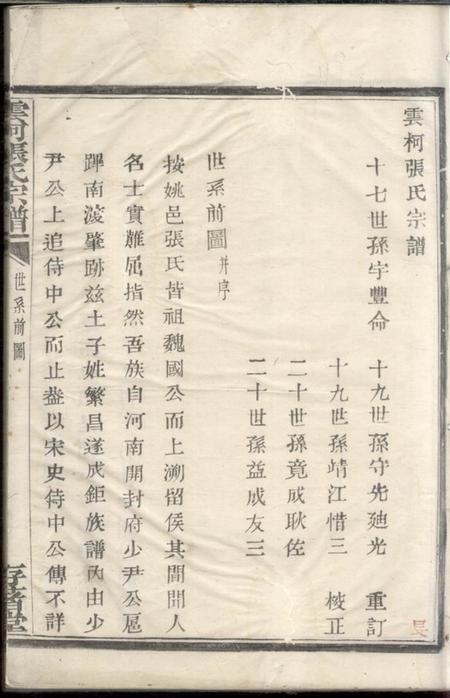 雲柯張氏宗譜
十七世孫宇豐命 十九世孫守先廸光 重訂
十九世孫靖江惜三 校正
二十世孫竟成耿佐
二十世孫益成友三
世系前圖并序
按姚邑張氏皆祖魏國公而上溯留侯其間聞人
名士實難屈指然吾族自河南開封府少尹公扈
蹕南渡肇跡兹土子姓繁昌遂成鉅族譜內由少
尹公上追侍中公而止葢以宋史侍中公傳不詳
雲柯張氏宗譜
世系前圖
存著堂